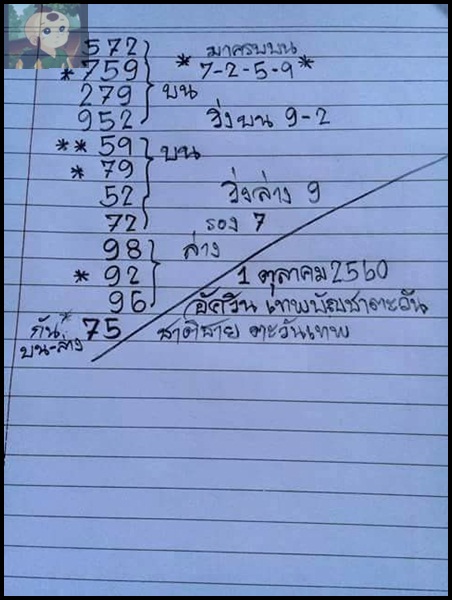 572 มาครบบน
*759 *7-2-5-9*
279 บน
952 วิ่งบน 9-2
**59 บน
*79
52 วิ่งล่าง 9
72 รอง 7
98 ล่าง
*92 1 ตุลาคม 2560
96 อัศวิน เทพบัญชาตะวัน
กัน* 75 ชาติชาย ตะวันเทพ
บน-ล่าง